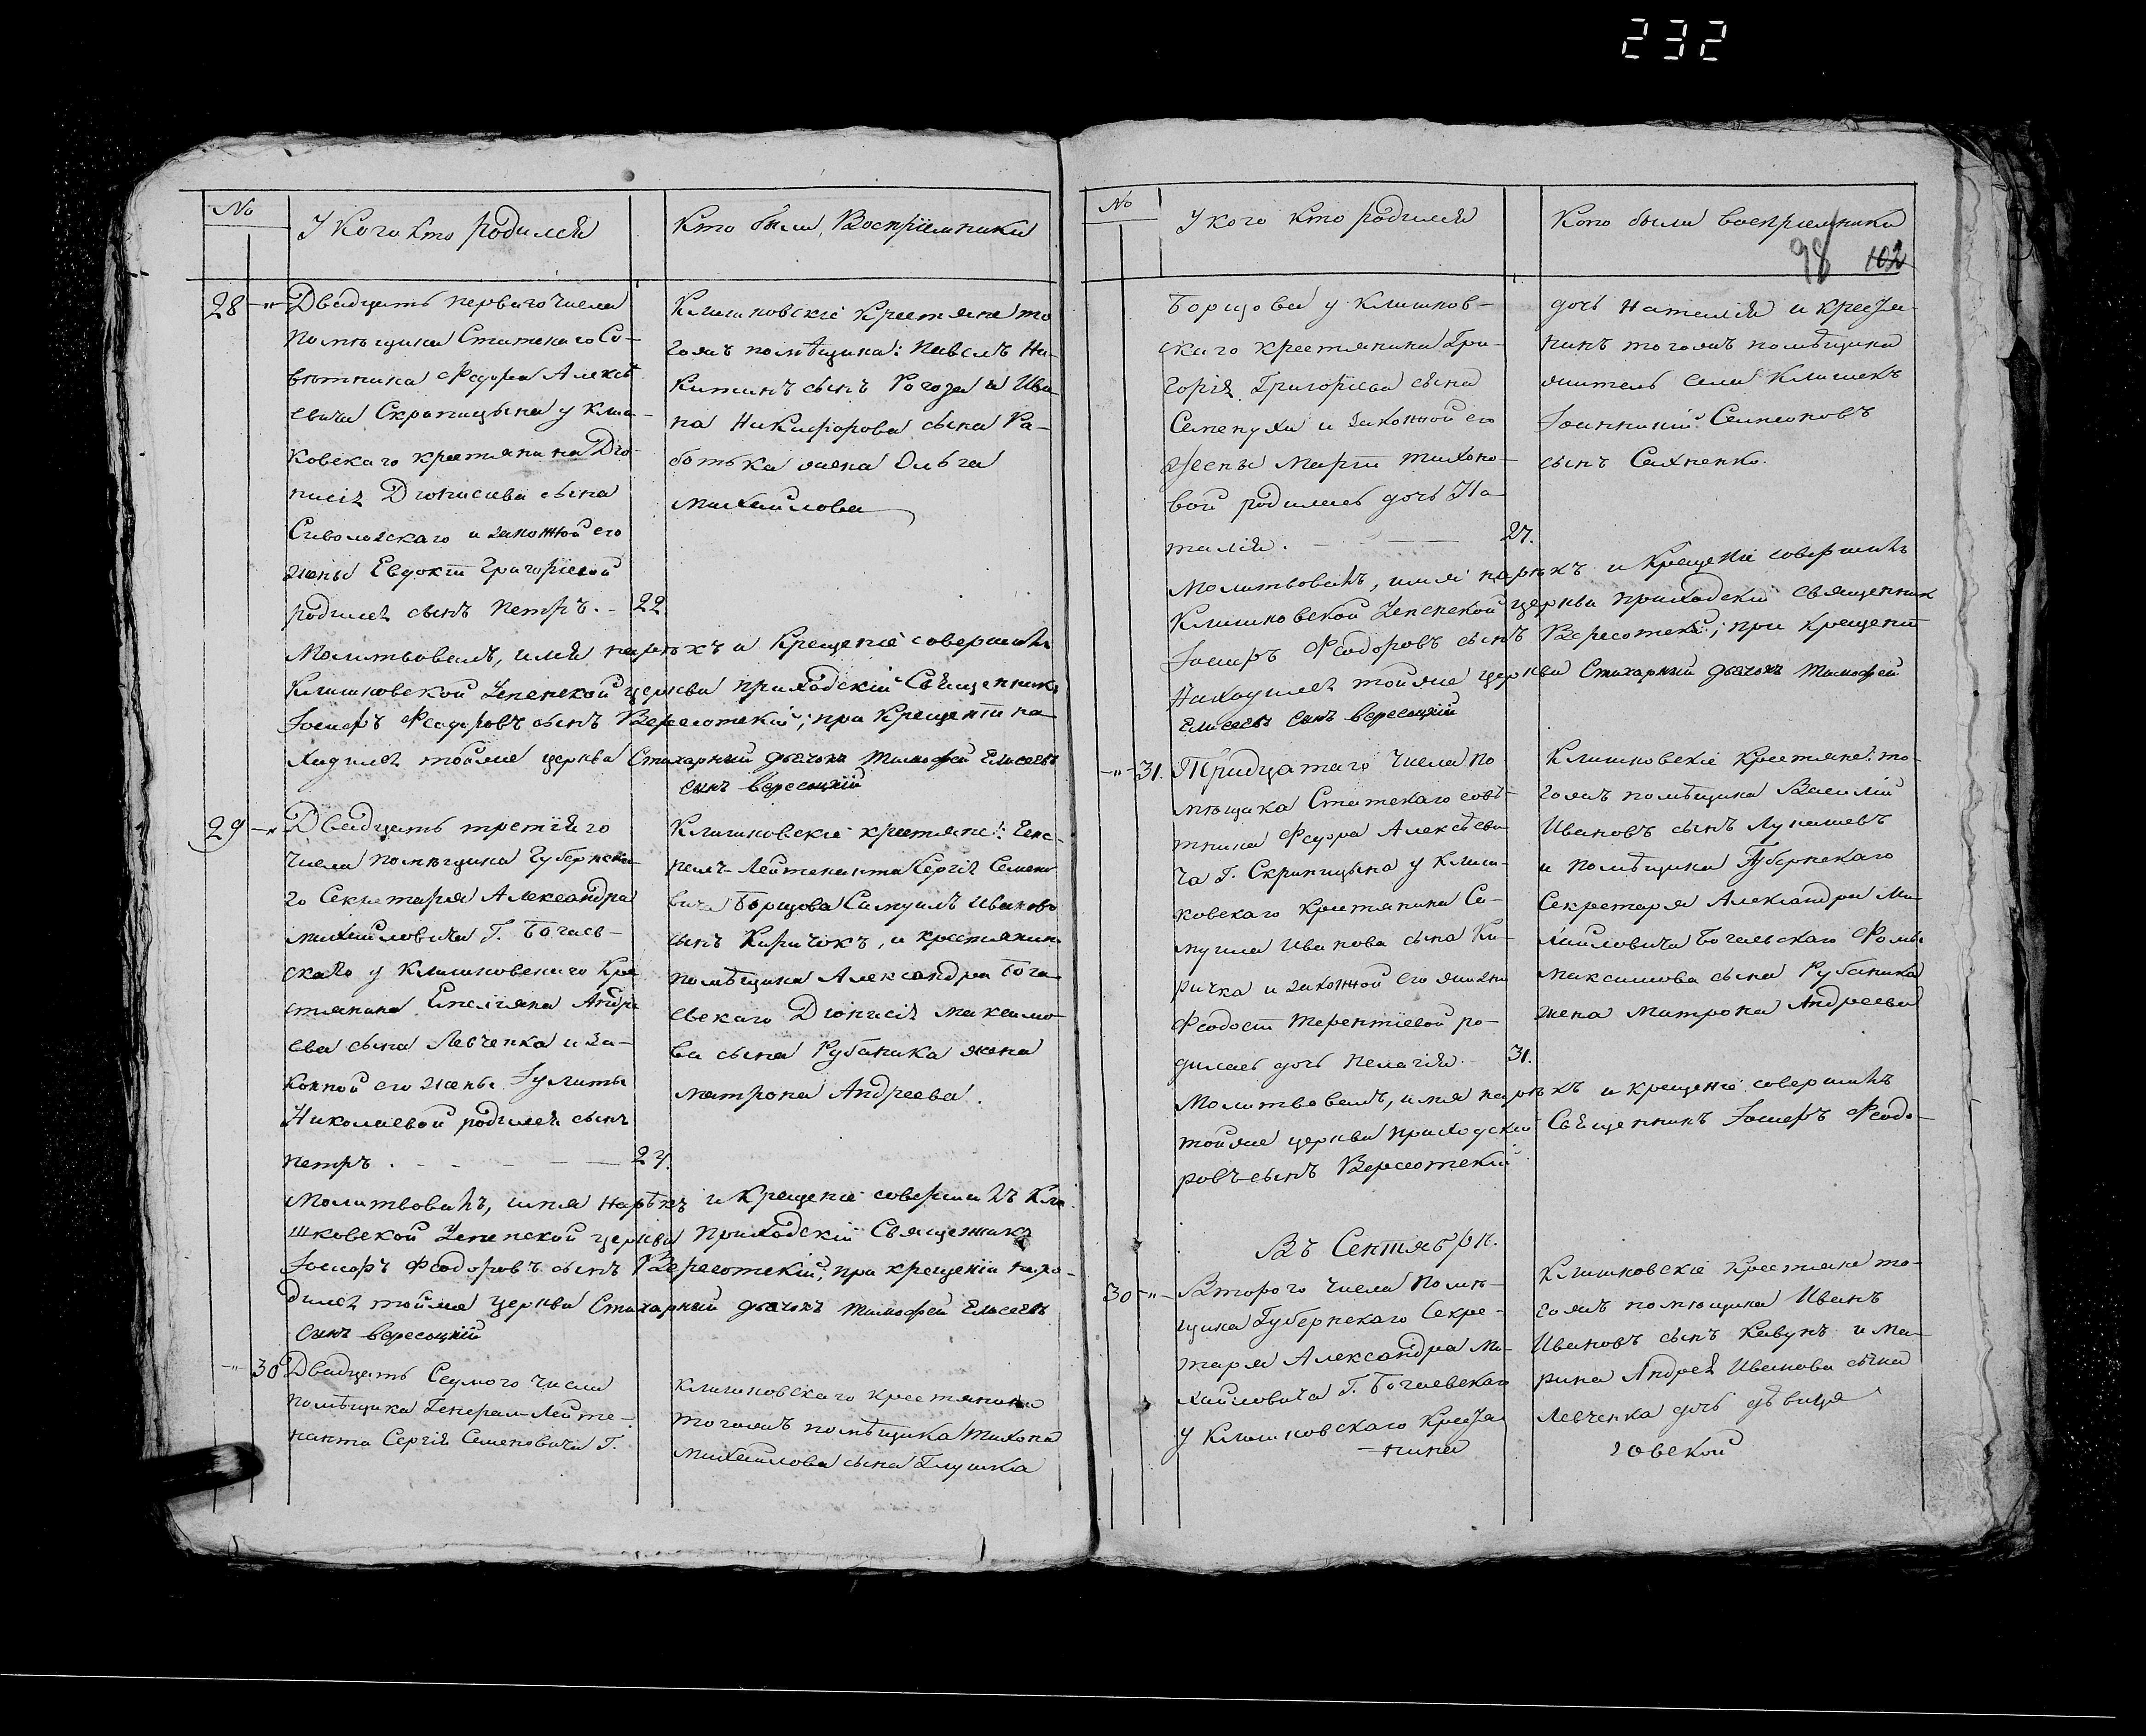 232
№
У Кого Кто родился
Кто были Воспріемники
28 -"- Двадцать перваго числа
Помѣщика Статскаго Со-
вѣтника Феодора Алексѣ
евича Скрипицына у Клиш-
ковскаго крестьянина Діо-
нисія Діонисіева сына
Сиволапскаго и законной его
жены Евдокіи Григоріевой
родился сынъ Петръ. - 22.
Клишковскіе Крестяне то
гожъ помѣщика: Павелъ Ни-
китинъ сынъ Рогоза и Ива-
на Никифорова сына Ра-
ботька жена Ольга
Михайлова
Молитвовалъ, имя нарѣкъ и Крещеніе совершилъ
Клишковской Успенской церкви приходскій Священникъ
Іосифъ Феодоровъ сынъ Вересотскій; при Крещеніи на-
ходился тойже церкви Стихарный дьячокъ Тимофей Елисеевъ
сынъ Вересоцкій
29 -"- Двадцать третіяго
числа помѣщика Губернска-
го Секретаря Александра
Михайловича Г. Богаев-
скаго у Клишковскаго Кре
стянина Емеліяна Андре
ева сына Левченка и За-
конной его жены Іулиты
Николаевой родился сынъ
Петръ. - - - - 24.
Клишковскіе крестяне: Гене-
ралъ-Лейтенанта Сергія Семено
вича Борщова Самуилъ Иванов
сынъ Киричокъ, и крестянин
помѣщика Александра Бога
евскаго Діонисія Максимо-
ва сына Рубаника жена
Матрона Андреева.
Молитвовалъ, имя нарѣкъ и Крещеніе совершилъ Кли
шковской Успенской церкви приходскій Священникъ
Іосифъ Феодоровъ сынъ Вересотскій; при крещеніи нахо-
дился тойже церкви Стихарный дьячокъ Тимофей Елисеевъ
сынъ Вересоцкій
-"- 30 Двадцать Седмого числа
помѣщика Генерал-Лейте-
нанта Сергія Семеновича Г.
Клишковскаго крестянина
тогожъ помѣщика Тихона
Михайлова сына Глушка
№
У кого кто родился
Кто были воспріемники
98 102
Борщова у Клишков-
скаго крестянина Гри-
горія Григоріева сына
Семенухи и законной его
жены Марѳи Тихоно-
вой родилась дочь На-
талія. - — 27.
дочь Наталія и крестя-
нинъ тогожъ помѣщика
житель села Клишекъ
Іоанникій Симеоновъ
сынъ Сахненко.
Молитвовалъ, имя нарѣкъ и Крещеніе совершилъ
Клишковской Успенской церкви приходскій священник
Іосифъ Феодоровъ сынъ Вересотскій; при крещеніи
Находился тойже церкви Стихарный дьячокъ Тимофей
Елисеевъ сынъ Вересоцкій
-"- 31. Тридцатаго числа по
мѣщика Статскаго совѣ-
тника Феодора Алексѣеви
ча Г. Скрипицына у Клиш-
ковскаго Крестянина Са-
муила Иванова сына Ки-
ричка и законной его жены
Феодосіи Терентіевой ро-
дилась дочь Пелагія. 31.
Клишковскіе Крестяне: то-
гожъ помѣщика Василій
Ивановъ сынъ Лукашевъ
и помѣщика Губернскаго
Секретаря Александра Ми-
хайловича Богаевскаго Фомы
Максимова сына Рубаника
жена Матрона Андреева
Молитвовалъ, имя нарѣкъ и крещеніе совершилъ
тойже церкви приходскій Священникъ Іосифъ Феодо-
ровъ сынъ Вересотскій
Въ Сентябрѣ.
30 -"- Второго числа Помѣ-
щика Губернскаго Секре-
таря Александра Ми-
хайловича Г. Богаевскаго
у Клишковскаго Крестя-
нина
Клишковскіе крестяне то-
гожъ помѣщика Иванъ
Ивановъ сынъ Кавунъ и Ма-
рина Андрея Иванова сына
Левченка дочь дѣвица